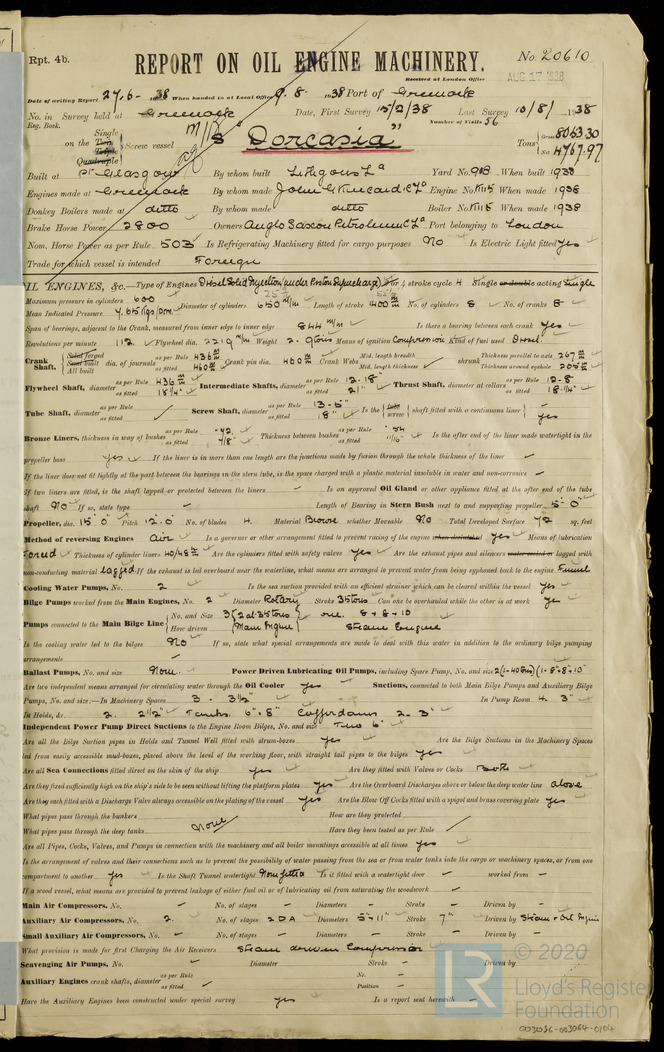 Rpt. 4b.
REPORT ON OIL ENGINE MACHINERY.
No. 20610
Received at London Office
AUG 17 1938
Date of writing Report 27.6.1938 When handed in at Local Office 9.8.1938 Port of Greenock
No. in Survey held at Greenock Date, First Survey 15/2/38 Last Survey 10/8/1938
Reg. Book. Number of Visits 56
on the Single Twin Triple Quadruple Screw vessel M/V "Dorcasia" Tons Gross 8063.30 Net 4767.97
Built at Pt Glasgow By whom built Lithgows Ld Yard No. 908 When built 1938
Engines made at Greenock By whom made John G Kincaid & Co Ld Engine No. K115 When made 1938
Donkey Boilers made at ditto By whom made ditto Boiler No. K115 When made 1938
Brake Horse Power 2800 Owners Anglo Saxon Petroleum Co Ld Port belonging to London
Nom. Horse Power as per Rule 503 Is Refrigerating Machinery fitted for cargo purposes No Is Electric Light fitted yes
Trade for which vessel is intended Foreign
OIL ENGINES, &c.—Type of Engines Diesel Solid Injection (under Piston Supercharge) 2 or 4 stroke cycle 4 Single or double acting Single
Maximum pressure in cylinders 600 Diameter of cylinders 650 m/m Length of stroke 1400 m/m No. of cylinders 8 No. of cranks 8
Mean Indicated Pressure
Span of bearings, adjacent to the Crank, measured from inner edge to inner edge 844 m/m Is there a bearing between each crank yes
Revolutions per minute 112 Flywheel dia. 2219 m/m Weight Means of ignition Compression Kind of fuel used Diesel
Crank Shaft, Solid forged Semi built All built dia. of journals as per Rule 436 m/m as fitted 460 m/m Crank pin dia. 460 m/m Crank Webs Mid. length breadth Mid. length thickness shrunk Thickness parallel to axis 267 m/m Thickness around eyehole 205 m/m
Flywheel Shaft, diameter as per Rule 436 m/m as fitted 18 1/4" Intermediate Shafts, diameter as per Rule 12.18" as fitted Thrust Shaft, diameter at collars as per Rule 12.8 as fitted 18 1/4"
Tube Shaft, diameter as per Rule as fitted Screw Shaft, diameter as per Rule 13.5" as fitted 18" Is the tube screw shaft fitted with a continuous liner yes
Bronze Liners, thickness in way of bushes as per Rule as fitted 7/8" Thickness between bushes as per Rule as fitted 11/16" Is the after end of the liner made watertight in the
propeller boss yes If the liner is in more than one length are the junctions made by fusion through the whole thickness of the liner -
If the liner does not fit tightly at the part between the bearings in the stern tube, is the space charged with a plastic material insoluble in water and non-corrosive -
If two liners are fitted, is the shaft lapped or protected between the liners - Is an approved Oil Gland or other appliance fitted at the after end of the tube
shaft No If so, state type - Length of Bearing in Stern Bush next to and supporting propeller 5'-0"
Propeller, dia. 15'.0" Pitch 12'.0" No. of blades 4. Material Bronze whether Moveable No Total Developed Surface 72 sq. feet
Method of reversing Engines Air Is a governor or other arrangement fitted to prevent racing of the engine when declutched yes Means of lubrication
Forced Thickness of cylinder liners Are the cylinders fitted with safety valves yes Are the exhaust pipes and silencers water cooled or lagged with
non-conducting material lagged If the exhaust is led overboard near the waterline, what means are arranged to prevent water being syphoned back to the engine Funnel
Cooling Water Pumps, No. 2 Is the sea suction provided with an efficient strainer which can be cleared within the vessel yes
Bilge Pumps worked from the Main Engines, No. 2 Diameter Rotary Stroke 35 tons Can one be overhauled while the other is at work yes
Pumps connected to the Main Bilge Line No. and Size 3 (2 at 35 tons) one. 8 + 8 + 10
How driven Main Engine Steam Engine
Is the cooling water led to the bilges No If so, state what special arrangements are made to deal with this water in addition to the ordinary bilge pumping
arrangements -
Ballast Pumps, No. and size None Power Driven Lubricating Oil Pumps, including Spare Pump, No. and size
Are two independent means arranged for circulating water through the Oil Cooler yes Suctions, connected to both Main Bilge Pumps and Auxiliary Bilge
Pumps, No. and size:—In Machinery Spaces 3 - 3 1/2" In Pump Room 4. 3"
In Holds, &c. 2. 2 1/2" Tanks. 6" & 8" Cofferdams 2 - 3"
Independent Power Pump Direct Suctions to the Engine Room Bilges, No. and size Two 6"
Are all the Bilge Suction pipes in Holds and Tunnel Well fitted with strum-boxes yes Are the Bilge Suctions in the Machinery Spaces
led from easily accessible mud-boxes, placed above the level of the working floor, with straight tail pipes to the bilges yes
Are all Sea Connections fitted direct on the skin of the ship yes Are they fitted with Valves or Cocks Both
Are they fixed sufficiently high on the ship's side to be seen without lifting the platform plates yes Are the Overboard Discharges above or below the deep water line above
Are they each fitted with a Discharge Valve always accessible on the plating of the vessel yes Are the Blow Off Cocks fitted with a spigot and brass covering plate yes
What pipes pass through the bunkers How are they protected
What pipes pass through the deep tanks None Have they been tested as per Rule
Are all Pipes, Cocks, Valves, and Pumps in connection with the machinery and all boiler mountings accessible at all times yes
Is the arrangement of valves and their connections such as to prevent the possibility of water passing from the sea or from water tanks into the cargo or machinery spaces, or from one
compartment to another yes Is the Shaft Tunnel watertight None fitted Is it fitted with a watertight door - worked from -
If a wood vessel, what means are provided to prevent leakage of either fuel oil or of lubricating oil from saturating the woodwork -
Main Air Compressors, No. - No. of stages - Diameters - Stroke - Driven by -
Auxiliary Air Compressors, No. 2. No. of stages 2 DA Diameters 5" + 11" Stroke 7" Driven by Steam & Oil Engine
Small Auxiliary Air Compressors, No. - No. of stages - Diameters - Stroke - Driven by -
What provision is made for first Charging the Air Receivers Steam driven Compressor
Scavenging Air Pumps, No. Diameter Stroke - Driven by
Auxiliary Engines crank shafts, diameter as per Rule as fitted No. - Position -
Have the Auxiliary Engines been constructed under special survey yes Is a report sent herewith -
© 2020
LR
Lloyd's Register
Foundation
003056-003064-0104